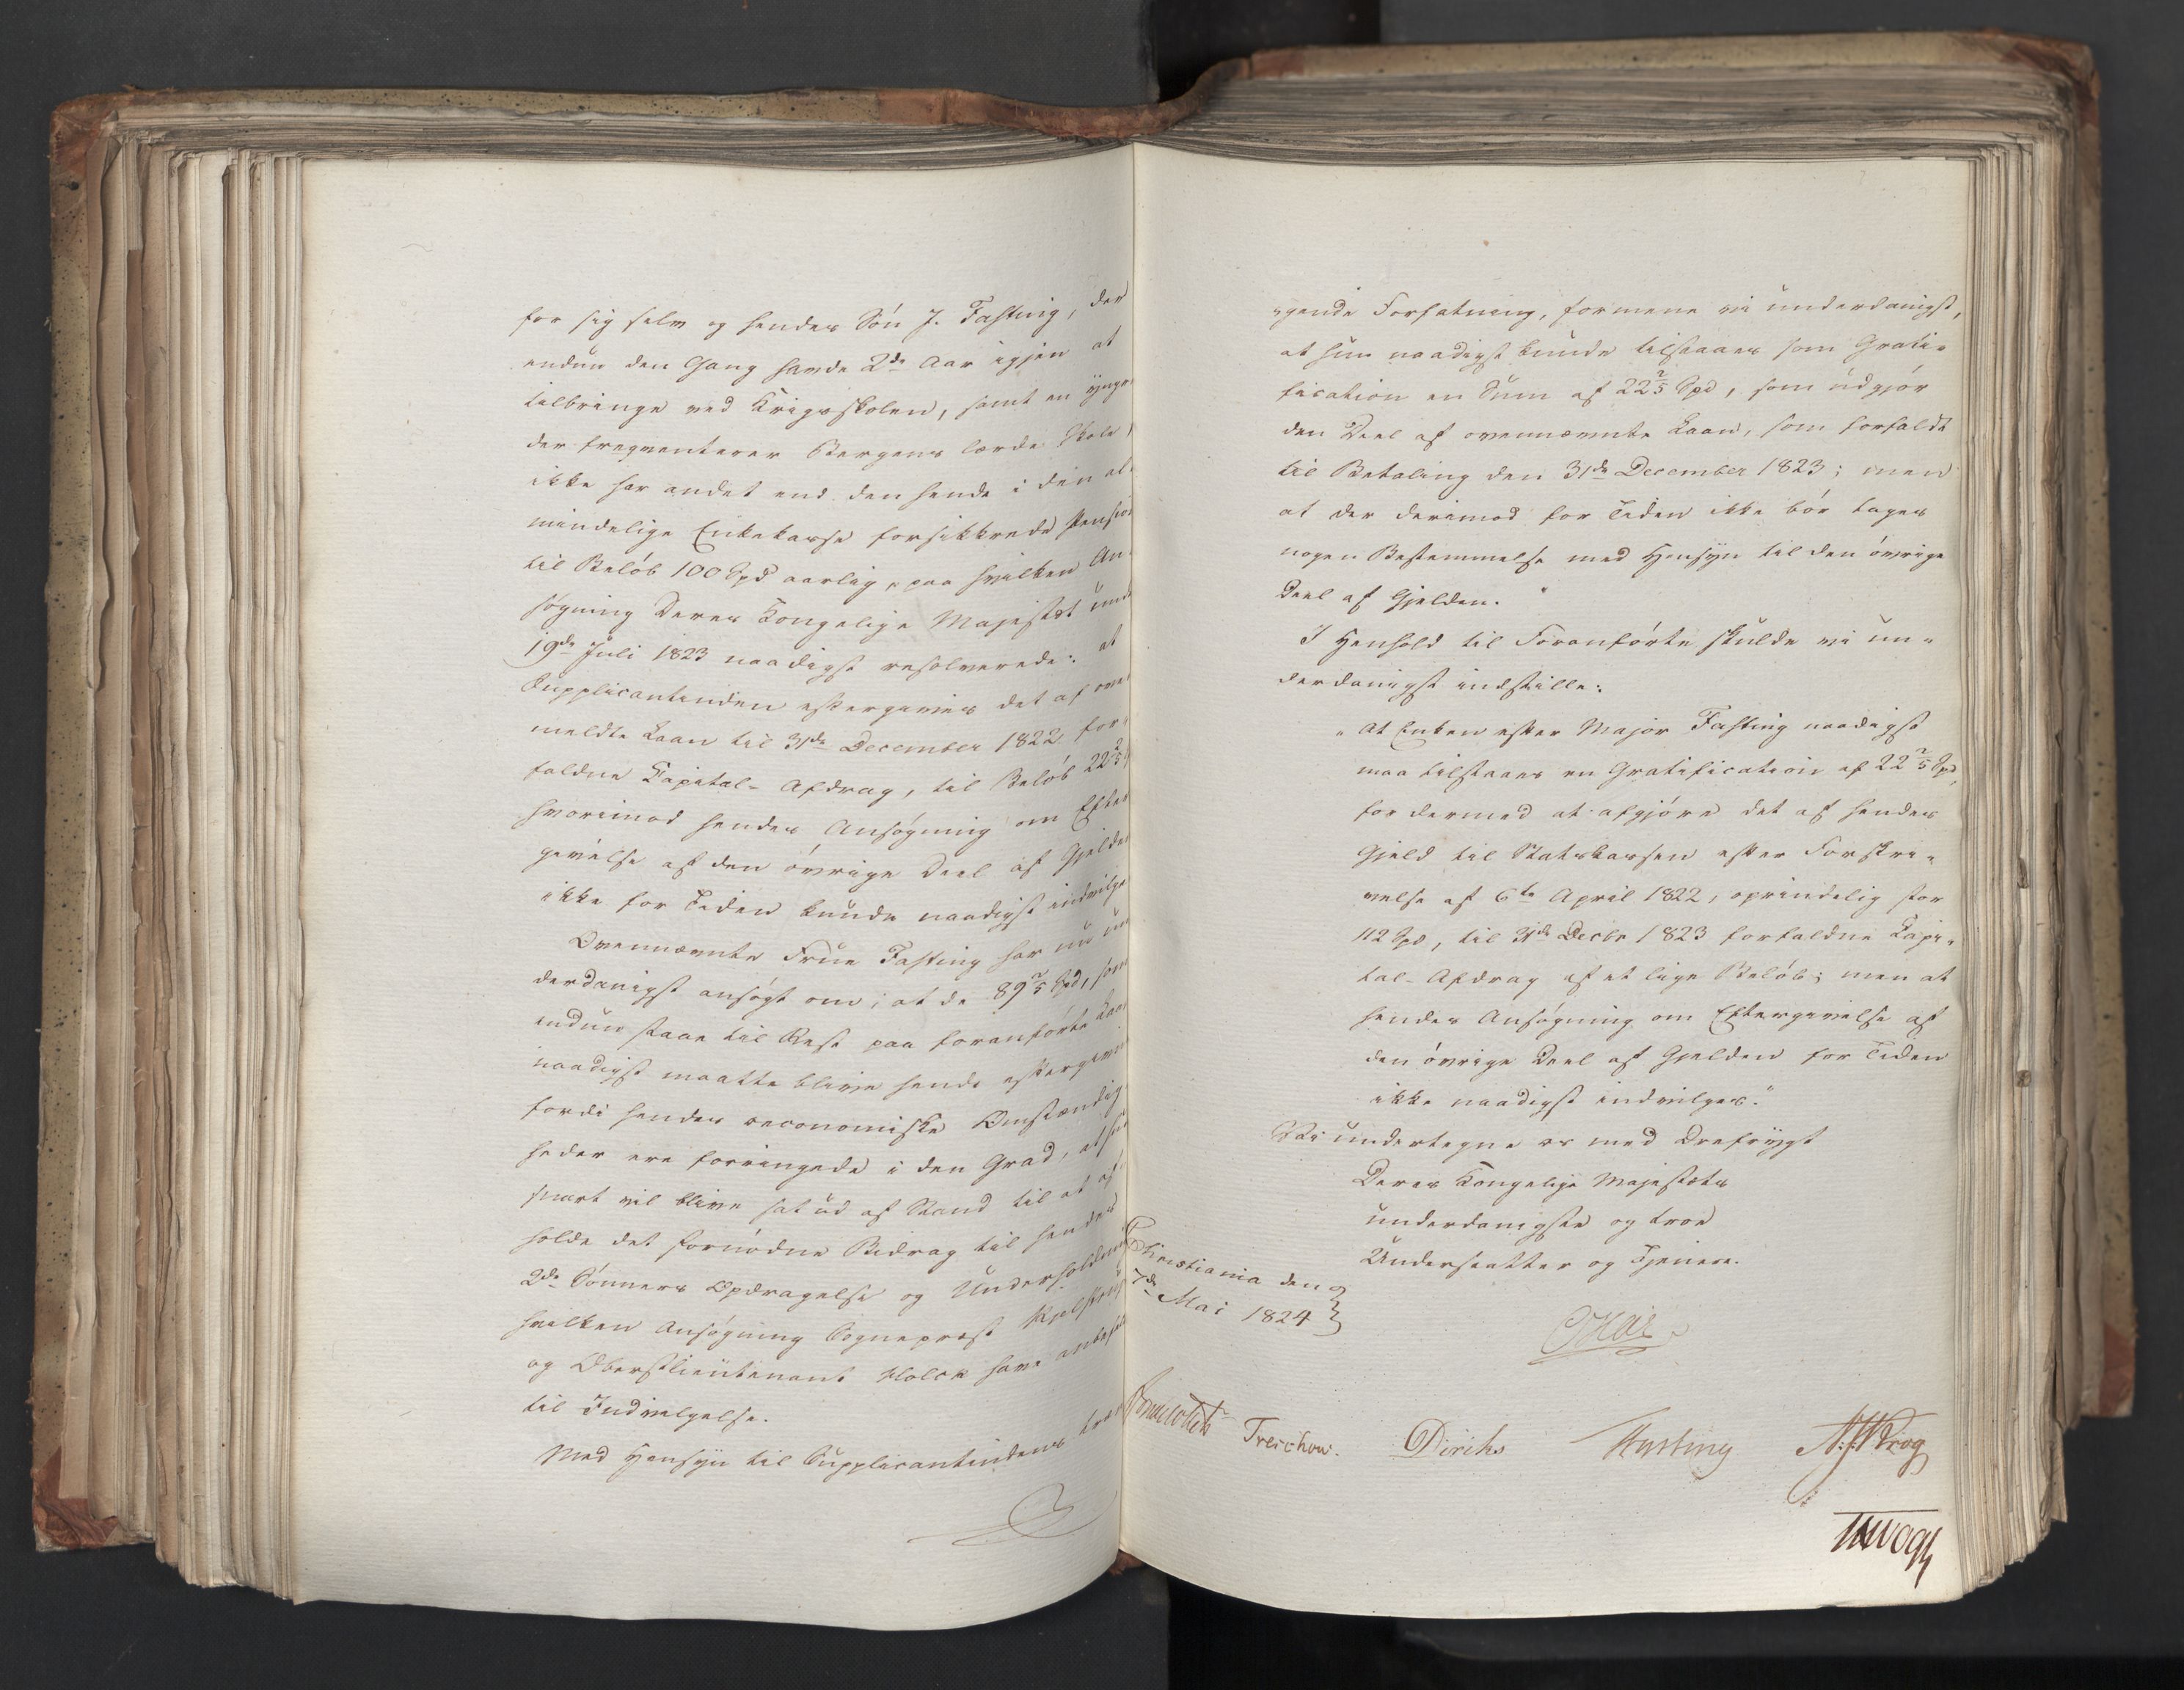 for sig selv og hendes Søn J. Fasting, der
endnu den Gang havde 2de Aar igjen at
tilbringe ved Krigsskolen, samt en yngre
der frequenterer Bergens lærde Skole,
ikke har andet end den hende i den al-
mindelige Enkekasse forsikkrede Pension
til Beløb 100 Spd aarlig, paa hvilken An-
søgning Deres Kongelige Majestæt und
19de Juli 1823 naadigst resolverede: at
Supplicantinden eftergives det af oven
meldte Laan til 31de December 1822 for-
faldne Kapital-Afdrag, til Beløb 22 2/5
hvorimod hendes Ansøgning om Efter
givelse af den øvrige Deel af Gjelden
ikke for Tiden kunde naadigst indvilges
Ovennævnte Frue Fasting har nu un
derdanigst ansøgt om, at de 89 3/5 Spd, som
endnu staae til Rest paa foranførte Laan
naadigst maatte blive hende eftergivne
fordi hendes oeconomiske Omstændig
heder ere forringede i den Grad, at hun
snart vil blive sat ud af Stand til at af
holde det fornødne Bidrag til hendes
2de Sønners Opdragelse og Underholdning
hvilken Ansøgning Sognepræst
og Oberstlieutenant Holck have anbefalet
til Indvilgelse.
Med Hensyn til Supplicantindens træn
gende Forfatning, formene vi underdanigst,
at hun naadigst kunde tilstaaes som Grati-
fication en Sum af 22 2/5 Spd, som udgjør
den Deel af ovennævnte Laan, som forfaldt
til Betaling den 31de December 1823; men
at der derimod for Tiden ikke bør tages
nogen Bestemmelse med Hensyn til den øvrige
Deel af Gjelden.
I Henhold til Foranførte skulde vi un-
derdanigst indstille:
"At Enken efter Major Fasting naadigst
maa tilstaaes en Gratification af 22 2/5 Spd,
for dermed at afgjøre det af hendes
Gjeld til Statskassen efter Forskri-
velse af 6te April 1822, oprindelig stor
112 Spd, til 31de Decbr 1823 forfaldne Kapi-
tal-Afdrag af et lige Beløb; men at
hendes Ansøgning om Eftergivelse af
den øvrige Deel af Gjelden for Tiden
ikke naadigst indvilges."
Vi undertegne os med Drefrygt
Deres Kongelige Majestæts
underdanigste og troe
Undersaatter og Tjenere.
Christiania den
7de Mai 1824
Treschow. Diriks Fasting